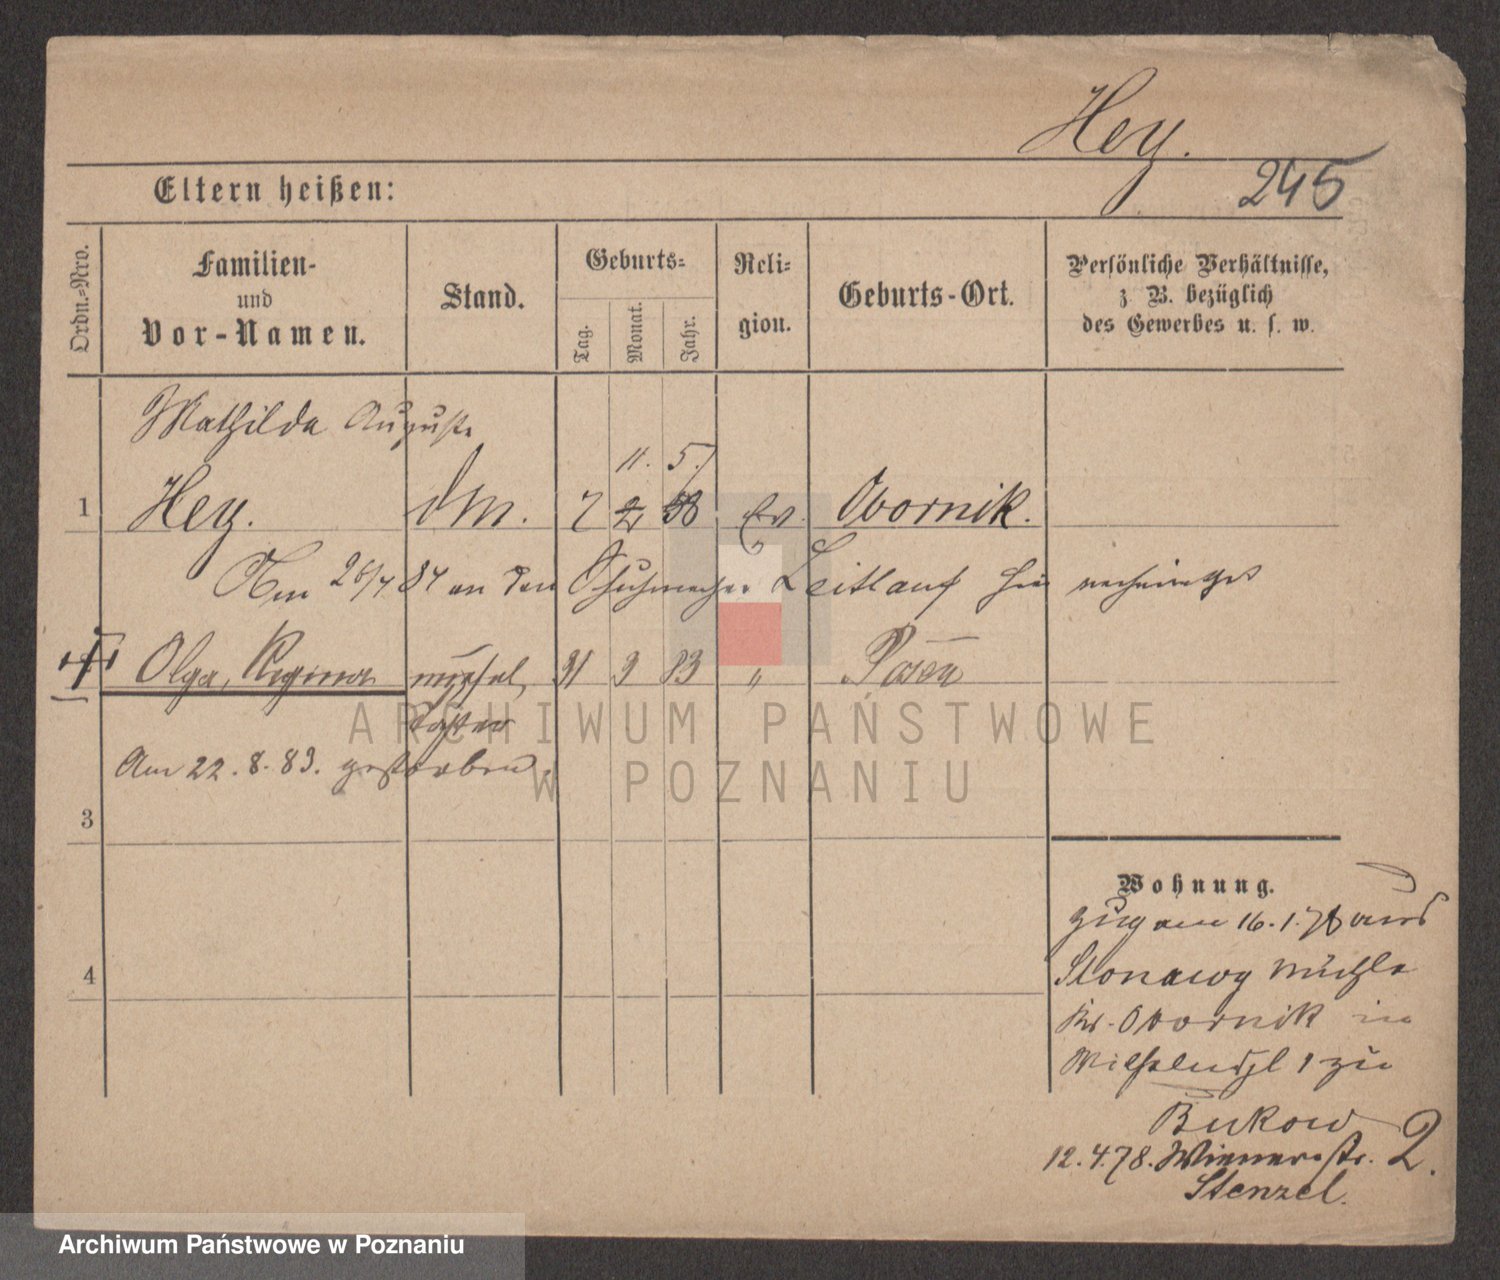 Hey.
245
Eltern heißen:
Ordn.-Nro.
Familien-
und
Vor-Namen.
Stand.
Geburts-
Tag.
Monat.
Jahr.
Reli-
gion.
Geburts-Ort.
Persönliche Verhältnisse,
z. B. bezüglich
des Gewerbes u. s. w.
Mathilde Auguste
11. 5.
1 Hey. 7 58 Ev. Obornik.
Am 26/4 84 an den Schuhmacher Leitlauf hier verheirathet
Olga, Regina unehel. 31 3 83 " Posen
Tochter
Am 22.8.83. gestorben.
3
4
Wohnung.
Zug am 16.1.78 aus
Slonawy Mühle
Kr. Obornik in
Wilhelmspl 1 zu
Bukow
12.4.78. Wienerstr. 2.
Stenzel.
ARCHIWUM PAŃSTWOWE
W POZNANIU
Archiwum Państwowe w Poznaniu